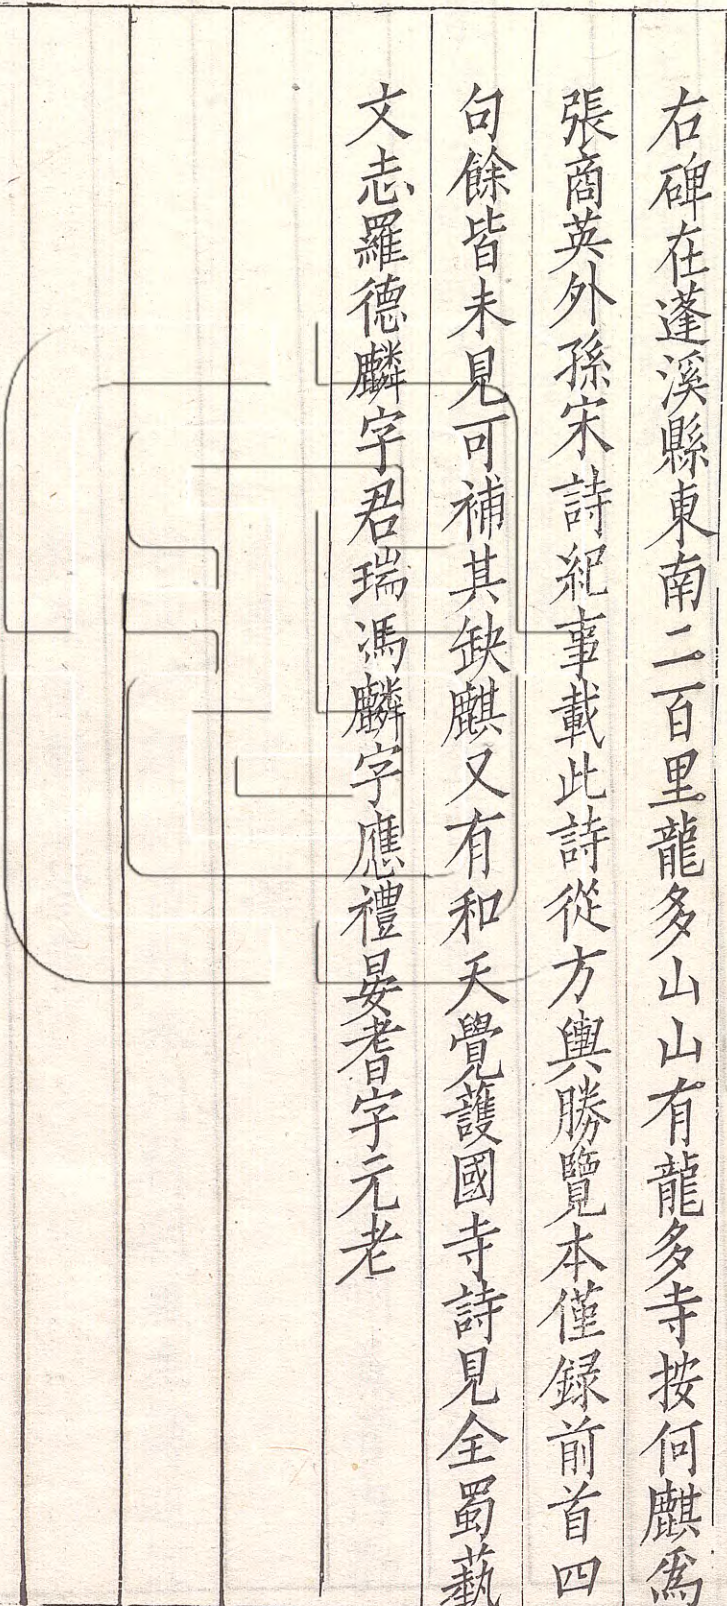 右碑在蓬溪縣東南二百里龍多山山有龍多寺按何麒為
張商英外孫宋詩紀事載此詩從方輿勝覽本僅録前首四
句餘皆未見可補其缺麒又有和天覺護國寺詩見全蜀藝
文志羅德麟字君瑞馮麟字應禮晏耆字元老